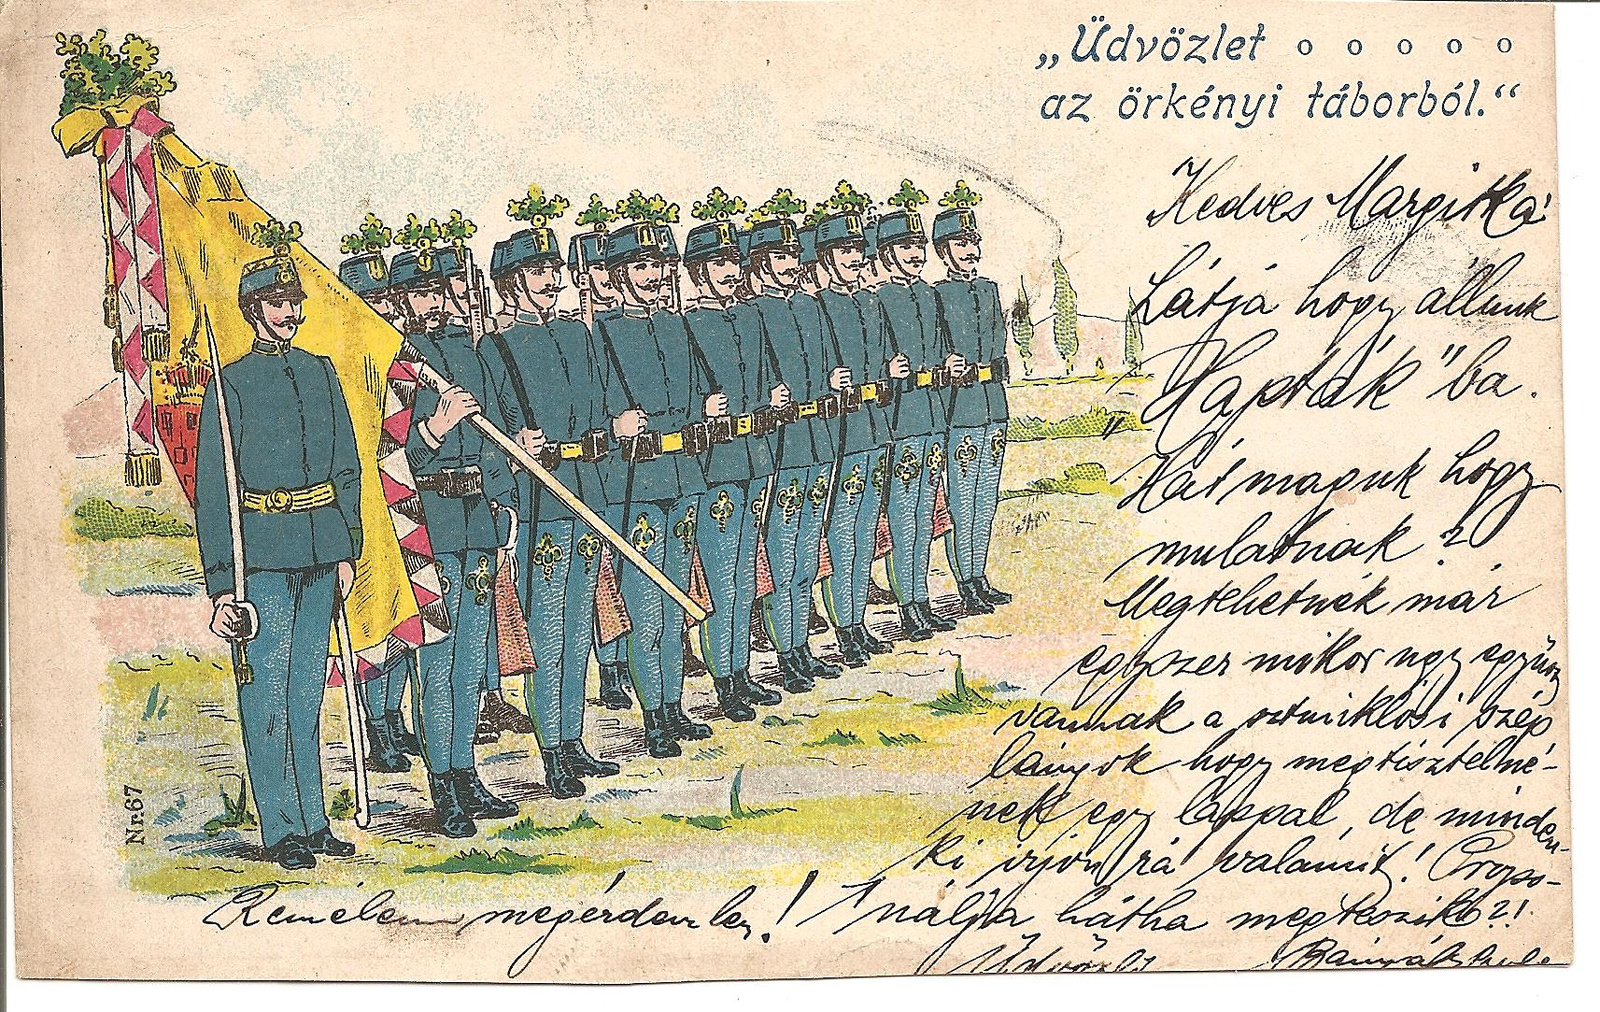 „Üdvözlet o o o o o
az örkényi táborból.“
Kedves Margitka!
Látja hogy állunk
„Hapták"ba.
Hát maguk hogy
mulatnak?
Megtehetnék már
egyszer mikor úgy együtt
vannak a sztmiklósi szép
lányok hogy megtisztelné-
nek egy lappal, de minden-
ki irjon rá valamit! Propo-
nálja hátha megteszik?!
Remélem megérdemlem!
Üdvözli
Nr.67